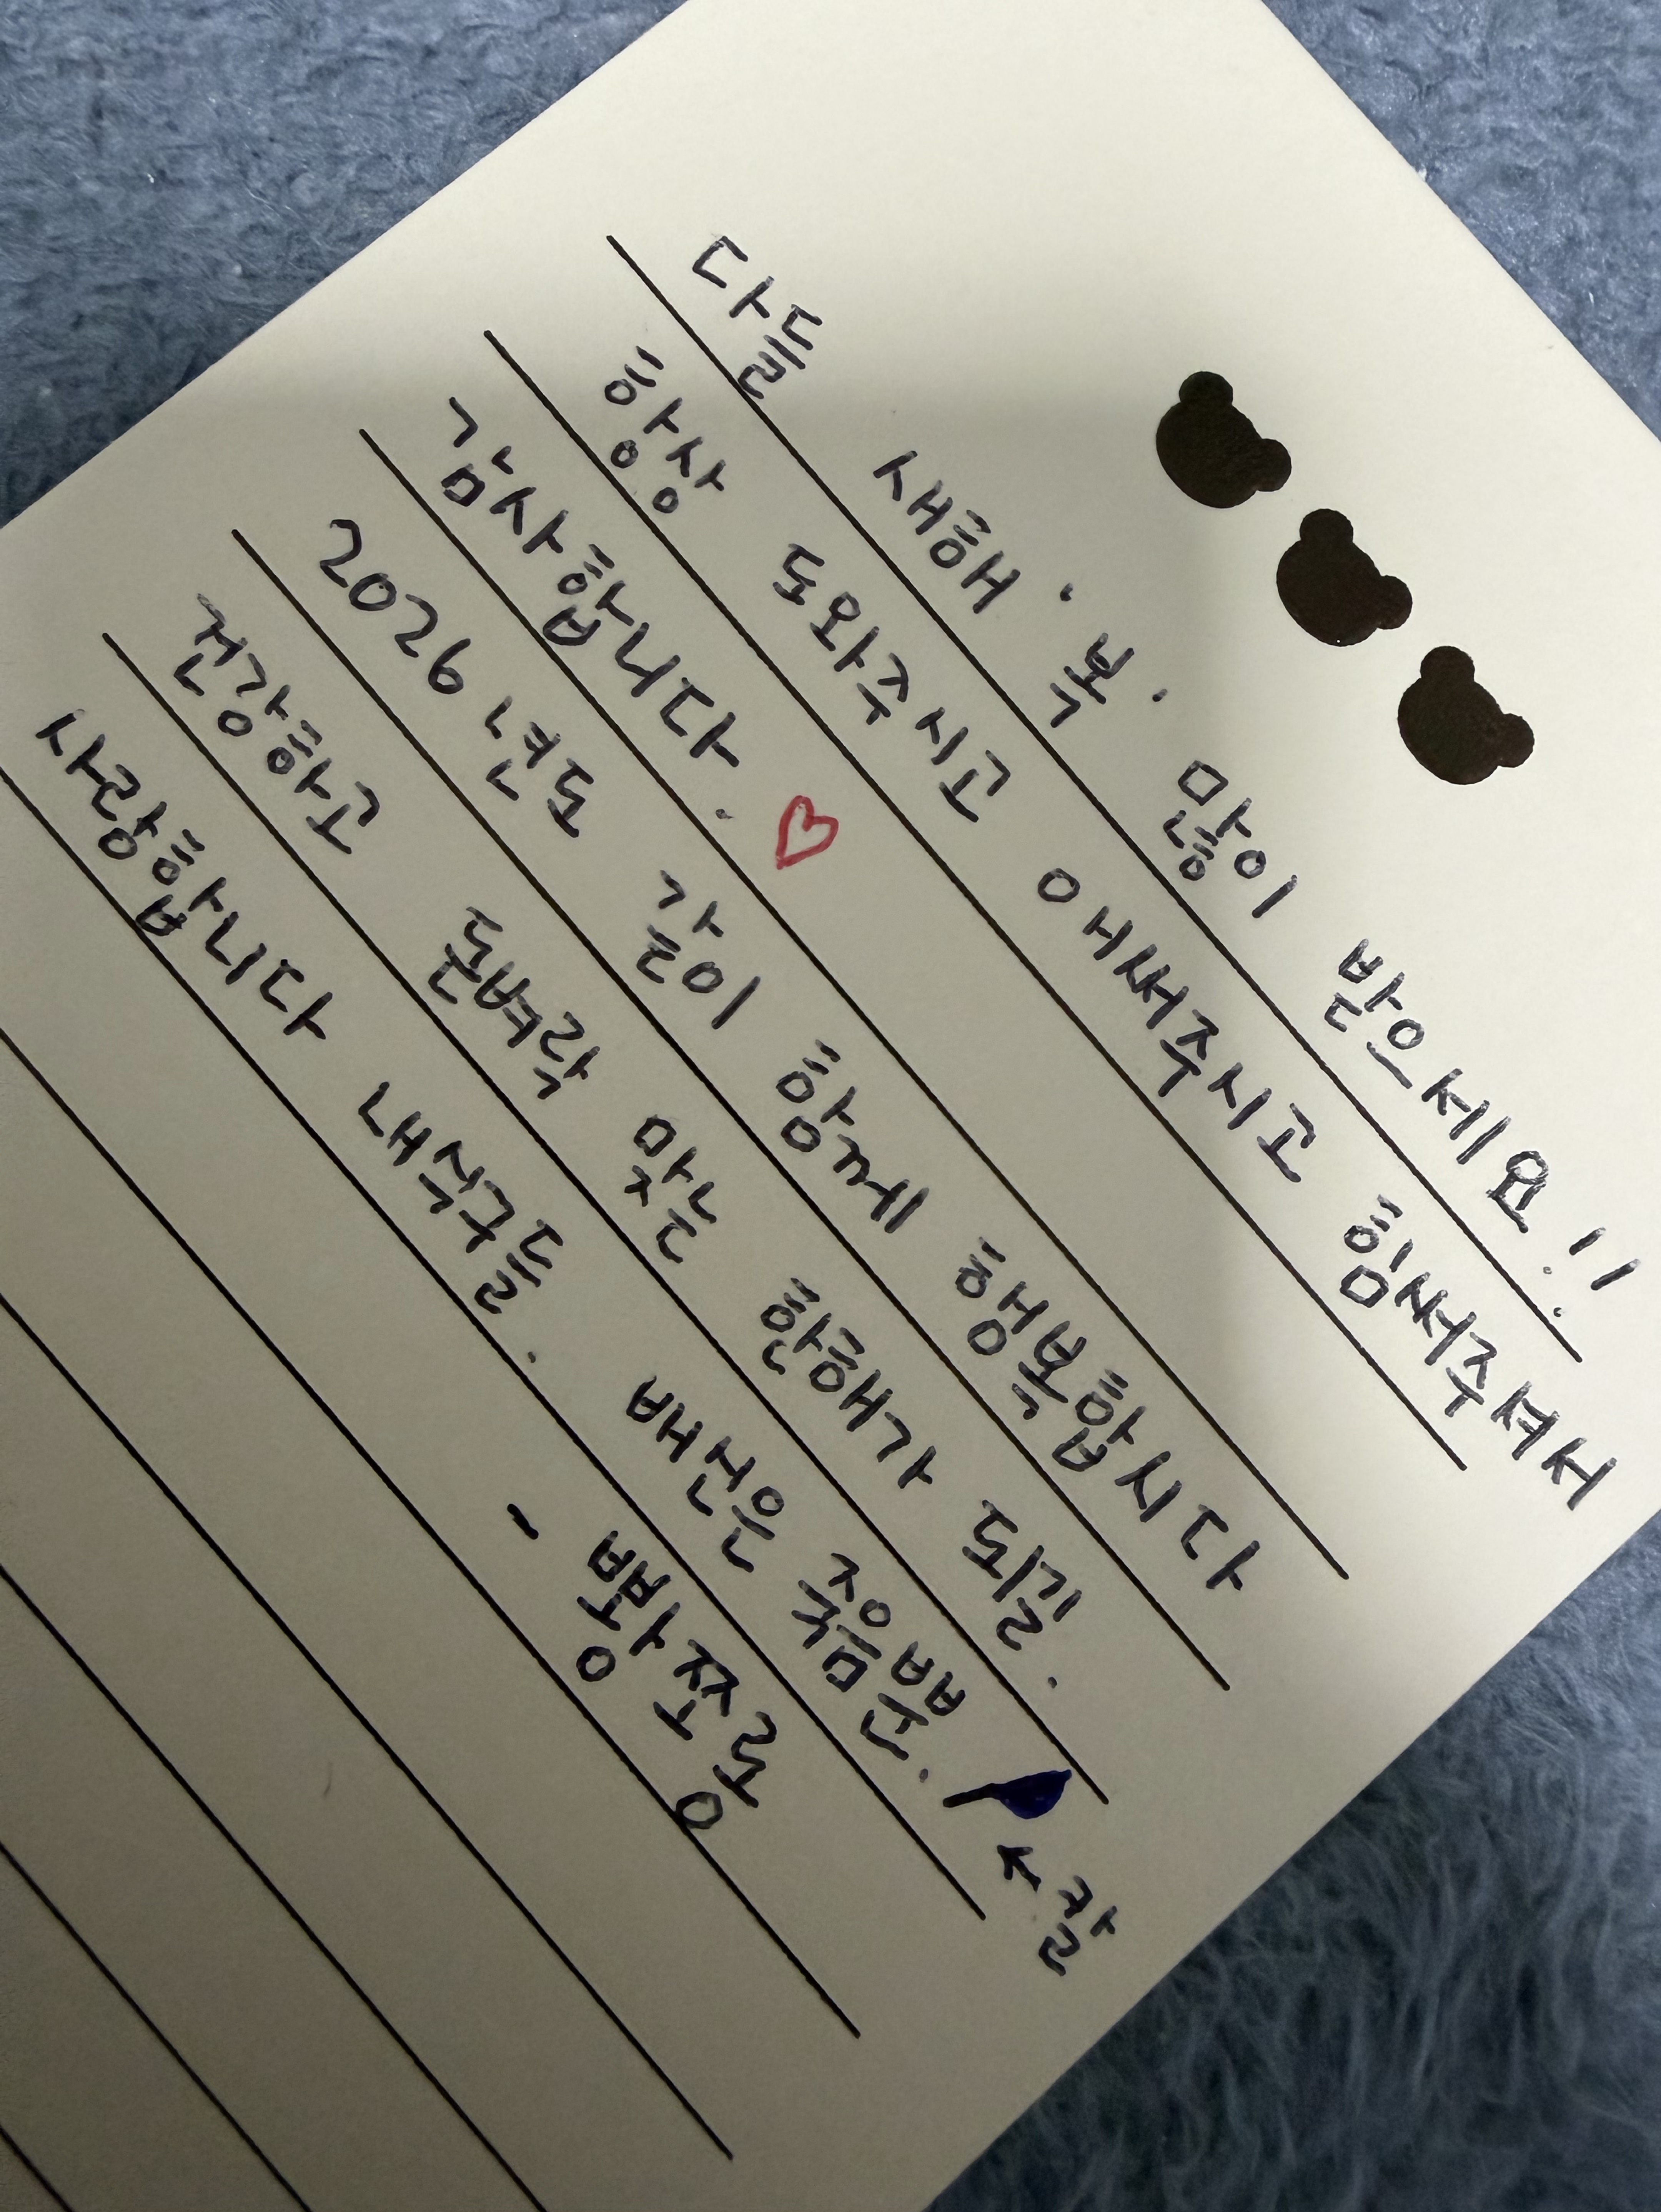 다들 새해·복· 많이 받으세요!!
항상 도와주시고 애써주시고 힘써주셔서
감사합니다. ♡
2026년도 같이 함께 행복합시다
건강하고 돈벼락 맞는 한해가 되길.
사랑합니다 내식구들. 배신은 죽음뿐.
←칼
- 뽕쪼롱